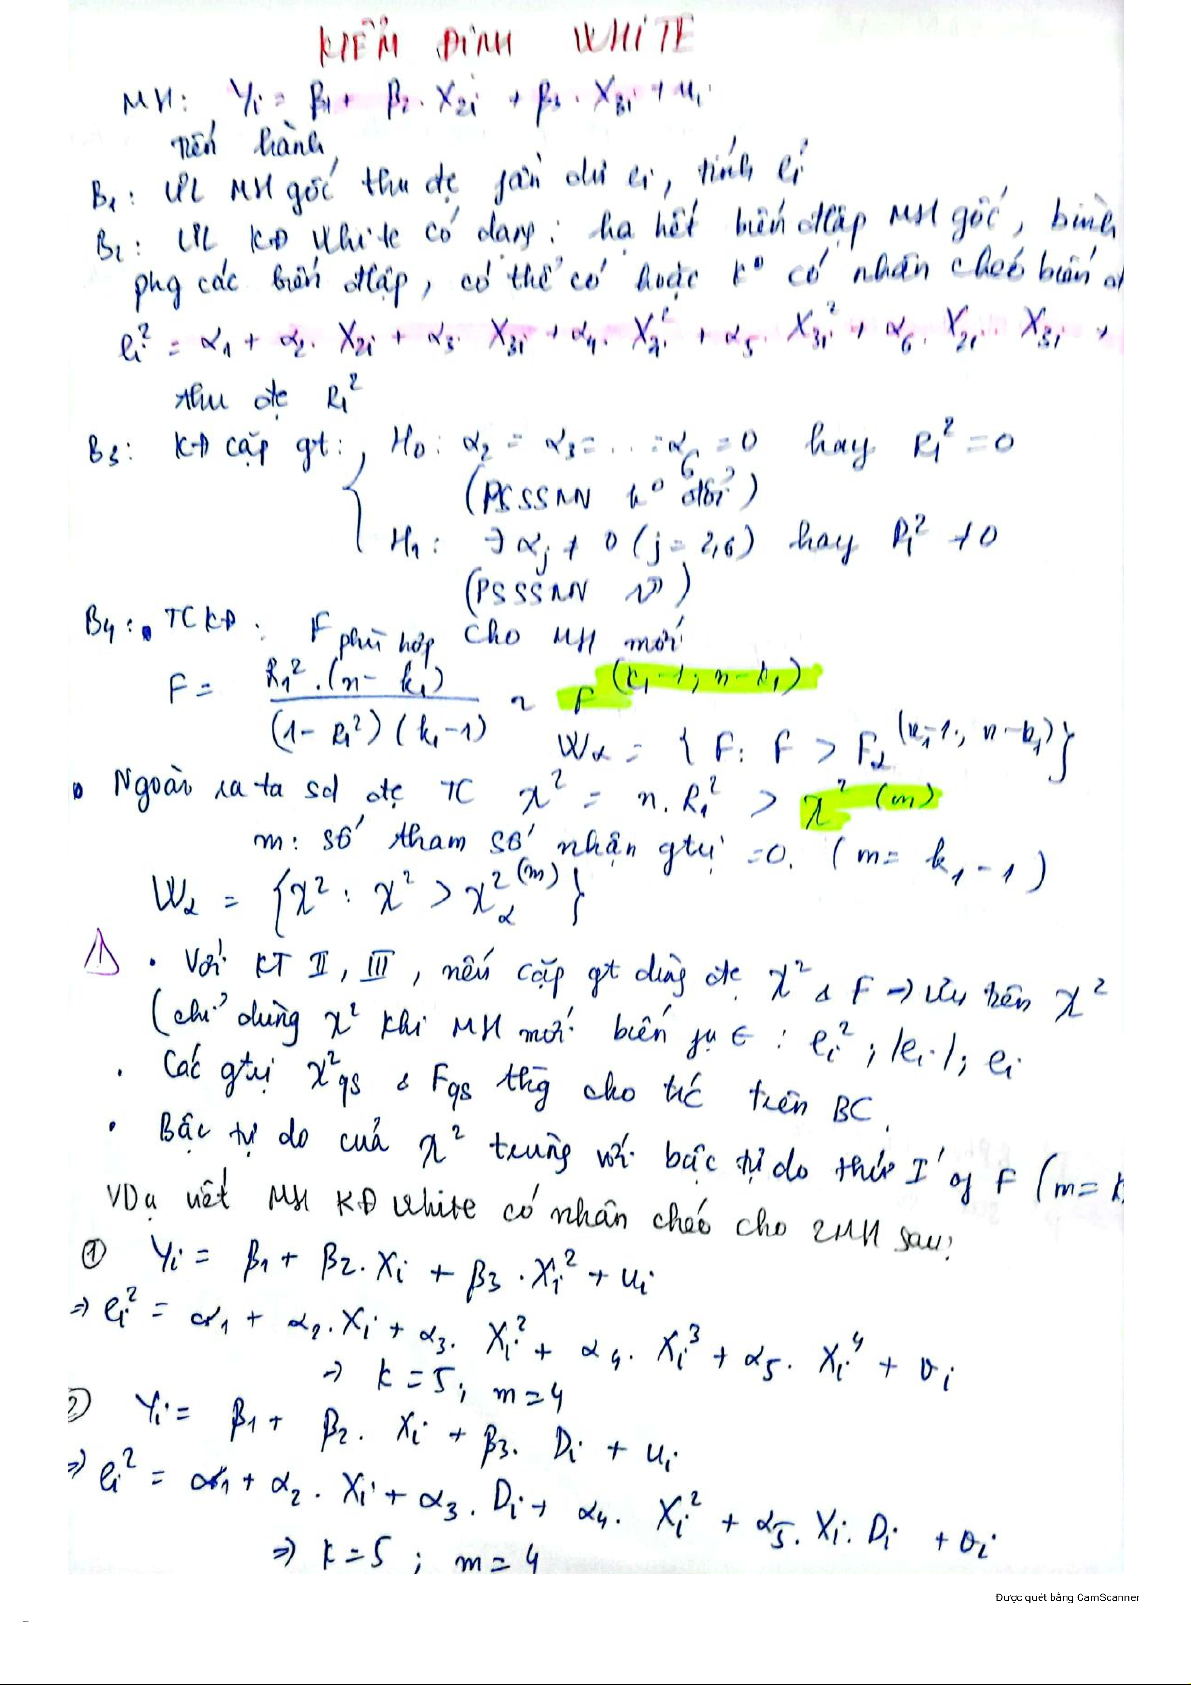 KIỂM ĐỊNH WHITE
MH: Yi = β1 + β2 . X2i + β3 . X3i + ui
Tiến hành
B1: ƯL MH gốc thu đc phần dư ei, tính ei
B2: ƯL KĐ White có dạng: hq hết biến đlập MH gốc, bình
phg các biến đlập, có thể có hoặc k° có nhân chéo biến đ
ei² = α1 + α2 . X2i + α3 . X3i + α4 . X2i² + α5 . X3i² + α6 . X2i . X3i +
thu đc R1²
B3: KĐ cặp gt: { H0: α2 = α3 = ... = α6 = 0 hay R1² = 0
(PSSSNN k° đổi)
H1: ∃ αj ≠ 0 (j = 2,6) hay R1² ≠ 0
(PSSSNN )
B4: • TCKĐ: F phù hợp cho MH mới
F = R1² . (n - k1) / (1 - R1²) (k1 - 1) ~ F (k1-1; n-k1)
Wα = { F: F > Fα (k1-1; n-k1) }
• Ngoài ra ta sd đc TC χ² = n . R1² > χ² (m)
m: số tham số nhận gtrị = 0. (m = k1 - 1)
Wα = { χ² : χ² > χ²α (m) }
⚠ • Với KT II, III, nếu cặp gt dùng đc χ² & F → ưu tiên χ²
(chỉ dùng χ² khi MH mới biến pụ ∈ : ei² ; |ei| ; ei
• Các gtrị χ²qs & Fqs thg cho trc trên BC.
• Bậc tự do của χ² trùng với bậc tự do thứ I of F (m = k
VDụ viết MH KĐ White có nhân chéo cho 2MH sau:
① Yi = β1 + β2 . Xi + β3 . Xi² + ui
⇒ ei² = α1 + α2 . Xi + α3 . Xi² + α4 . Xi³ + α5 . Xi⁴ + vi
⇒ k = 5 ; m = 4
② Yi = β1 + β2 . Xi + β3 . Di + ui
⇒ ei² = α1 + α2 . Xi + α3 . Di + α4 . Xi² + α5 . Xi . Di + vi
⇒ k = 5 ; m = 4
Được quét bằng CamScanner